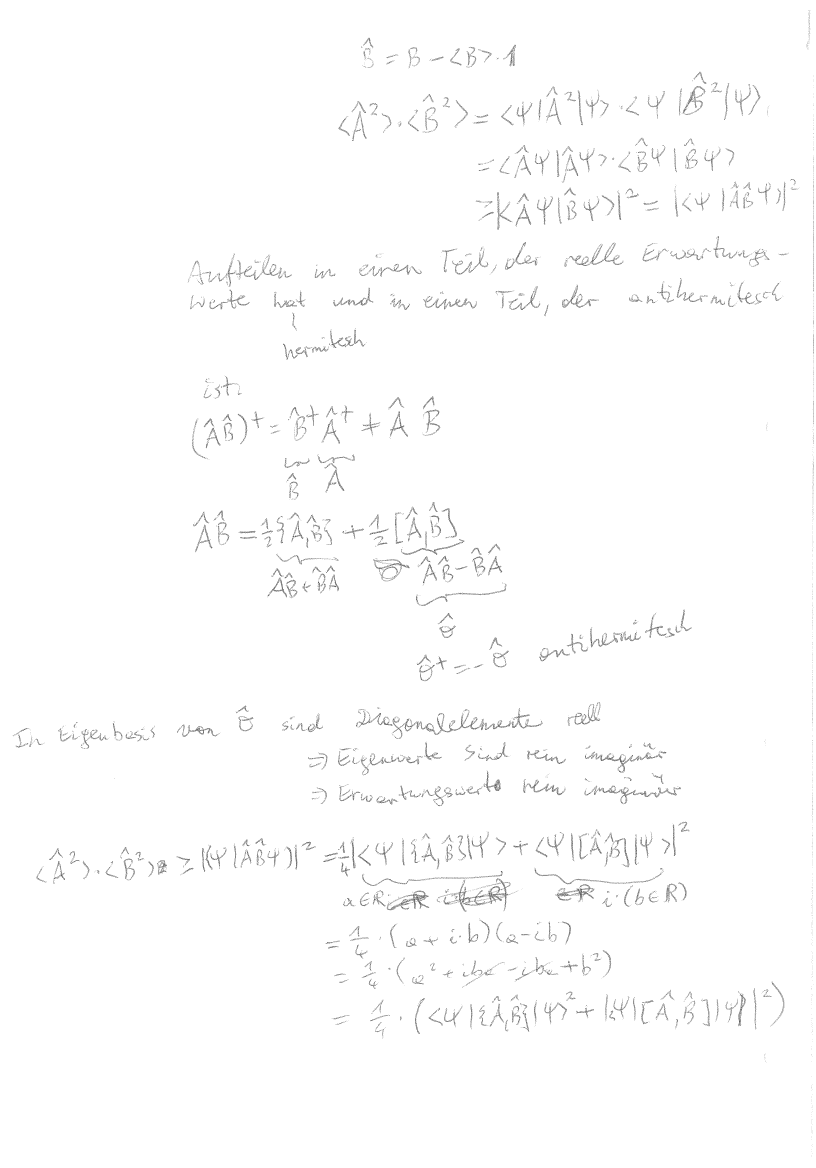 B̂ = B - <B>·1
<Â²>·<B̂²> = <Ψ|Â²|Ψ>·<Ψ|B̂²|Ψ>
= <ÂΨ|ÂΨ>·<B̂Ψ|B̂Ψ>
≥ |<ÂΨ|B̂Ψ>|² = |<Ψ|ÂB̂Ψ>|²
Aufteilen in einen Teil, der reelle Erwartungs-
werte hat und in einen Teil, der antihermitesch
hermitesch
ist:
(ÂB̂)⁺ = B̂⁺Â⁺ ≠ Â B̂
B̂ Â
ÂB̂ = ½{Â,B̂} + ½[Â,B̂]
ÂB̂+B̂Â ÂB̂-B̂Â
Ô
Ô⁺ = -Ô antihermitesch
In Eigenbasis von Ô sind Diagonalelemente reell
⇒ Eigenwerte sind rein imaginär
⇒ Erwartungswerte rein imaginär
<Â²>·<B̂²> ≥ |<Ψ|ÂB̂Ψ>|² = ¼|<Ψ|{Â,B̂}|Ψ> + <Ψ|[Â,B̂]|Ψ>|²
a∈ℝ i·(b∈ℝ)
= ¼·(a+i·b)(a-ib)
= ¼·(a²+iba-iba+b²)
= ¼·(<Ψ|{Â,B̂}|Ψ>²+|<Ψ|[Â,B̂]|Ψ>|²)